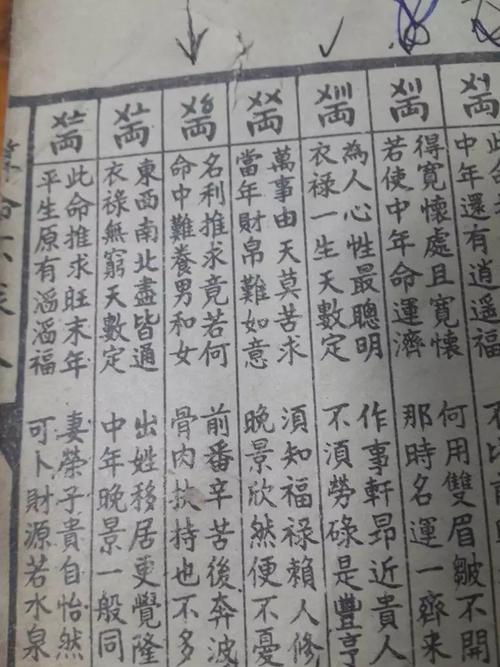 〤〡両
中年還有逍遙福
〤〢両
得寬懷處且寬懷 何用雙眉皺不開
若使中年命運濟 那時名運一齊來
〤〣両
為人心性最聰明 作事軒昂近貴人
衣祿一生天數定 不須勞碌是豐亨
〤〤両
萬事由天莫苦求 須知福祿賴人修
當年財帛難如意 晚景欣然便不憂
〤〥両
名利推求竟若何 前番辛苦後奔波
命中難養男和女 骨肉扶持也不多
〤〦両
東西南北盡皆通 出姓移居更覺隆
衣祿無窮天數定 中年晚景一般同
〤〧両
此命推求旺末年 妻榮子貴自怡然
平生原有滔滔福 可卜財源若水泉